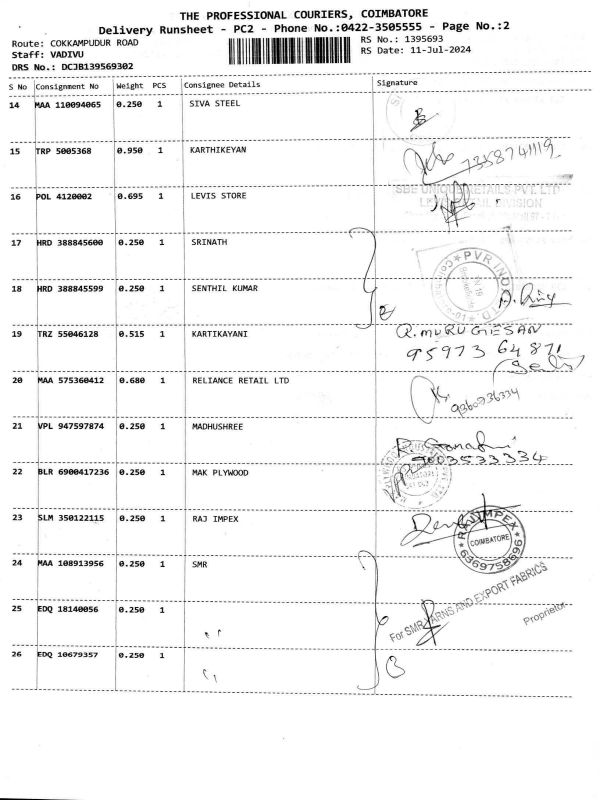 THE PROFESSIONAL COURIERS, COIMBATORE
Delivery Runsheet - PC2 - Phone No.:0422-3505555 - Page No.:2
Route: COKKAMPUDUR ROAD
RS No.: 1395693
Staff: VADIVU
RS Date: 11-Jul-2024
DRS No.: DCJB139569302
S No Consignment No Weight PCS Consignee Details Signature
14 MAA 110094065 0.250 1 SIVA STEEL
15 TRP 5005368 0.950 1 KARTHIKEYAN
7358741119
16 POL 4120002 0.695 1 LEVIS STORE
SBE UNIQUE RETAILS PVT. LTD
DIVISION
17 HRD 388845600 0.250 1 SRINATH
PVR INOX LTD
18 HRD 388845599 0.250 1 SENTHIL KUMAR
2
19 TRZ 55046128 0.515 1 KARTIKAYANI
R.MURUGESAN
95973 64871
20 MAA 575360412 0.680 1 RELIANCE RETAIL LTD
9360736334
21 VPL 947597874 0.250 1 MADHUSHREE
9003533334
22 BLR 6900417236 0.250 1 MAK PLYWOOD
23 SLM 350122115 0.250 1 RAJ IMPEX
RAJ IMPEX
COIMBATORE
6369758696
24 MAA 108913956 0.250 1 SMR
For SMR YARNS AND EXPORT FABRICS
Proprietor
25 EDQ 18140056 0.250 1 "
26 EDQ 10679357 0.250 1 "
3